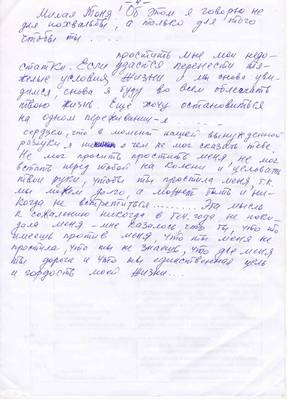 - 4 -
Милая Тоня! Об этом я говорю не
для похвальбы, а только для того
чтобы ты . . . .
простить мне мои недо-
статки. Если удастся перенести тя-
жёлые условия жизни и мы снова уви-
димся, снова я буду во всём облегчать
твою жизнь. Ещё хочу остановиться
на одном переживании - я
сердцем, что в момент нашей вынужденной
разлуки я ни о чем не мог сказать тебе.
Не мог просить простить меня, не мог
встать перед тобой на колени и целовать
твои руки, чтобы ты простила меня, т.к.
мы можем долго, а может быть и ни-
когда не встретиться......... Эта мысль
к сожалению никогда в тен. года не поки-
дала меня - мне казалось что ты, что то
имеешь против меня, что ты меня не
простила, что ты не знаешь, что для меня
ты дорога и что ты единственная цель
и гордость моей жизни...